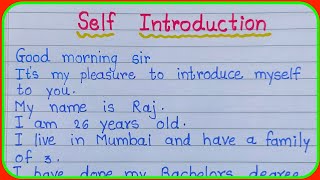 Self Introduction
Good morning sir
It's my pleasure to introduce myself
to you.
My name is Raj.
I am 26 years old.
I live in Mumbai and have a family
of 3.
I have done my Bachelors degree